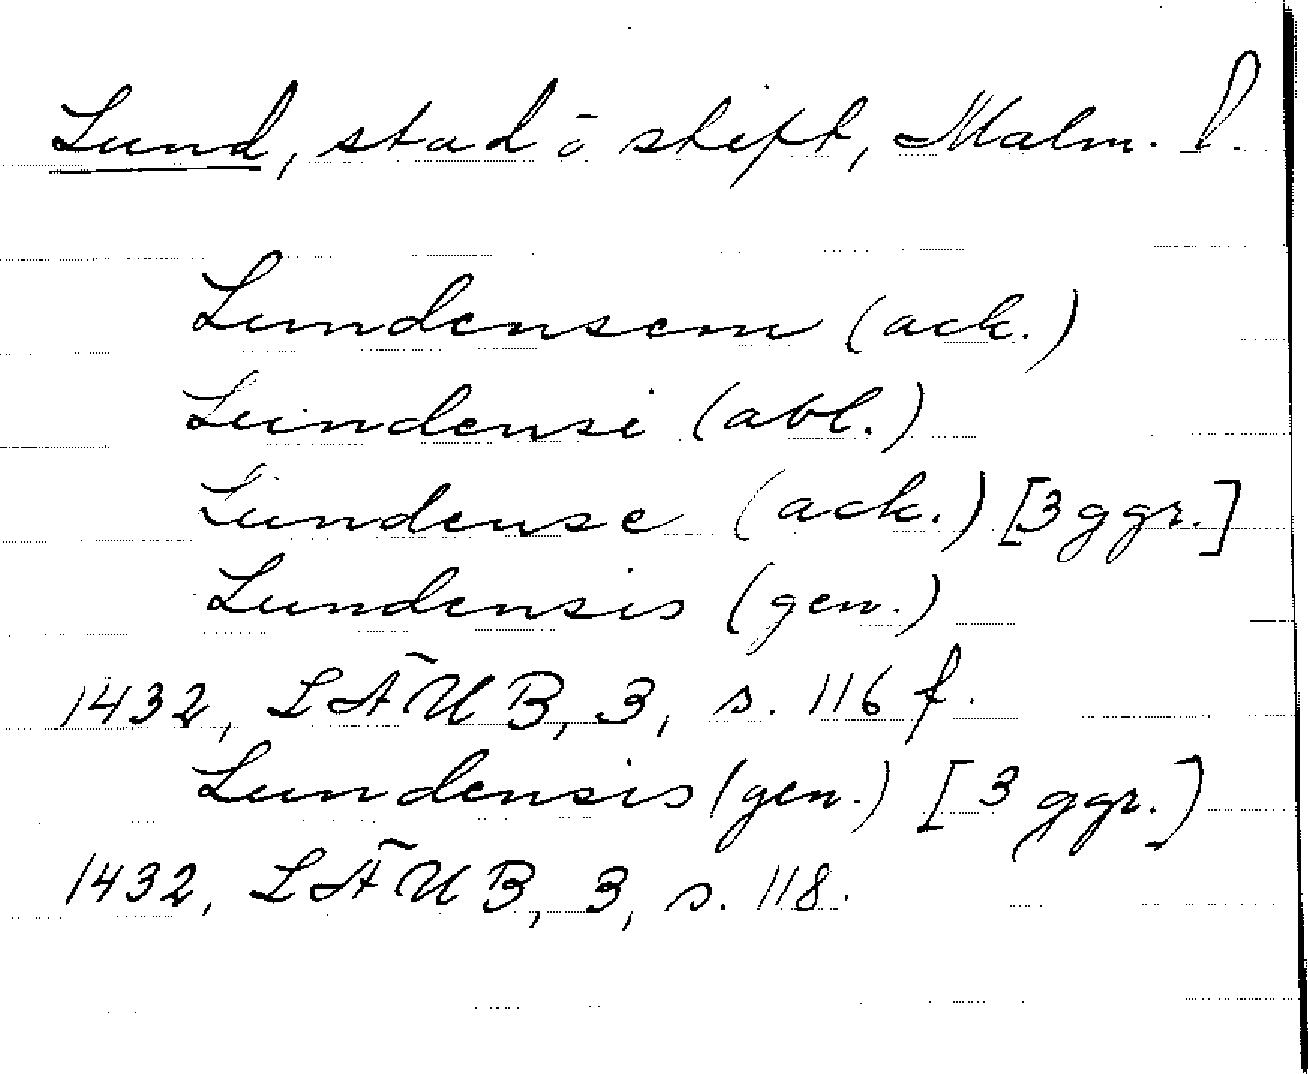 Lund, stad o stift, Malm. l.
Lundensem (ack.)
Lundensi (abl.)
Lundense (ack.) [3 ggr.]
Lundensis (gen.)
1432, LÄUB, 3, s. 116 f.
Lundensis (gen.) [3 ggr.]
1432, LÄUB, 3, s. 118.